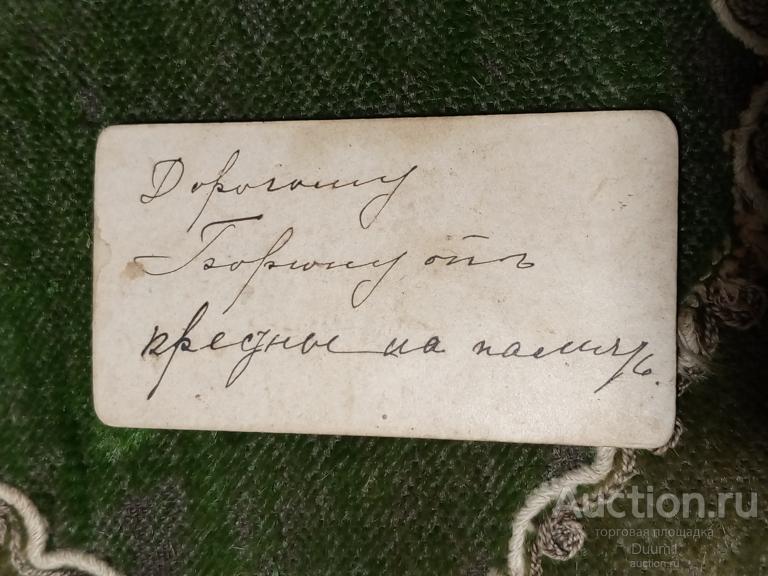 Дорогому
Борюну отъ
крестны на память.
Auction.ru
торговая площадка
Duumij
auction.ru